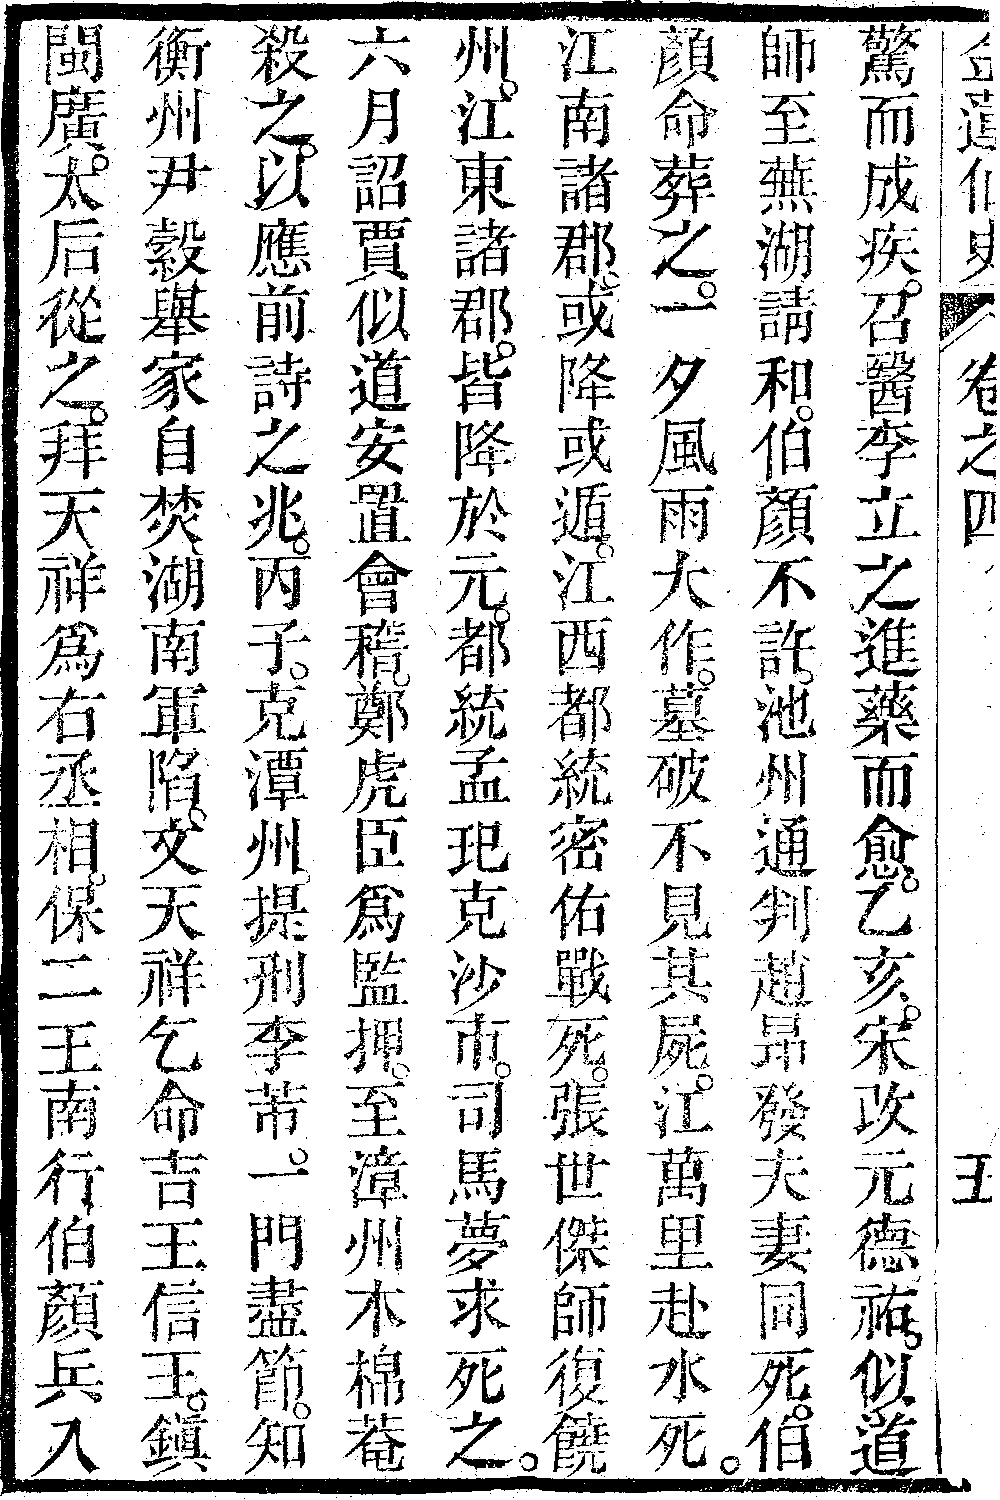 金蓮仙史 卷之四 五
驚而成疾。召醫李立之進藥而愈。乙亥。宋改元德祐。似道
師至蕪湖請和。伯顏不許。池州通判趙昂發夫妻同死。伯
顏命葬之。一夕風雨大作。墓破不見其屍。江萬里赴水死。
江南諸郡。或降或遁。江西都統密佑戰死。張世傑師復饒
州。江東諸郡。皆降於元。都統孟玘克沙市。司馬夢求死之。
六月詔賈似道安置會稽。鄭虎臣爲監押。至漳州木棉菴
殺之。以應前詩之兆。丙子。克潭州。提刑李芾。一門盡節。知
衡州尹穀舉家自焚。湖南軍陷。文天祥乞命吉王信王。鎭
閩廣。太后從之。拜天祥爲右丞相。保二王南行。伯顏兵入